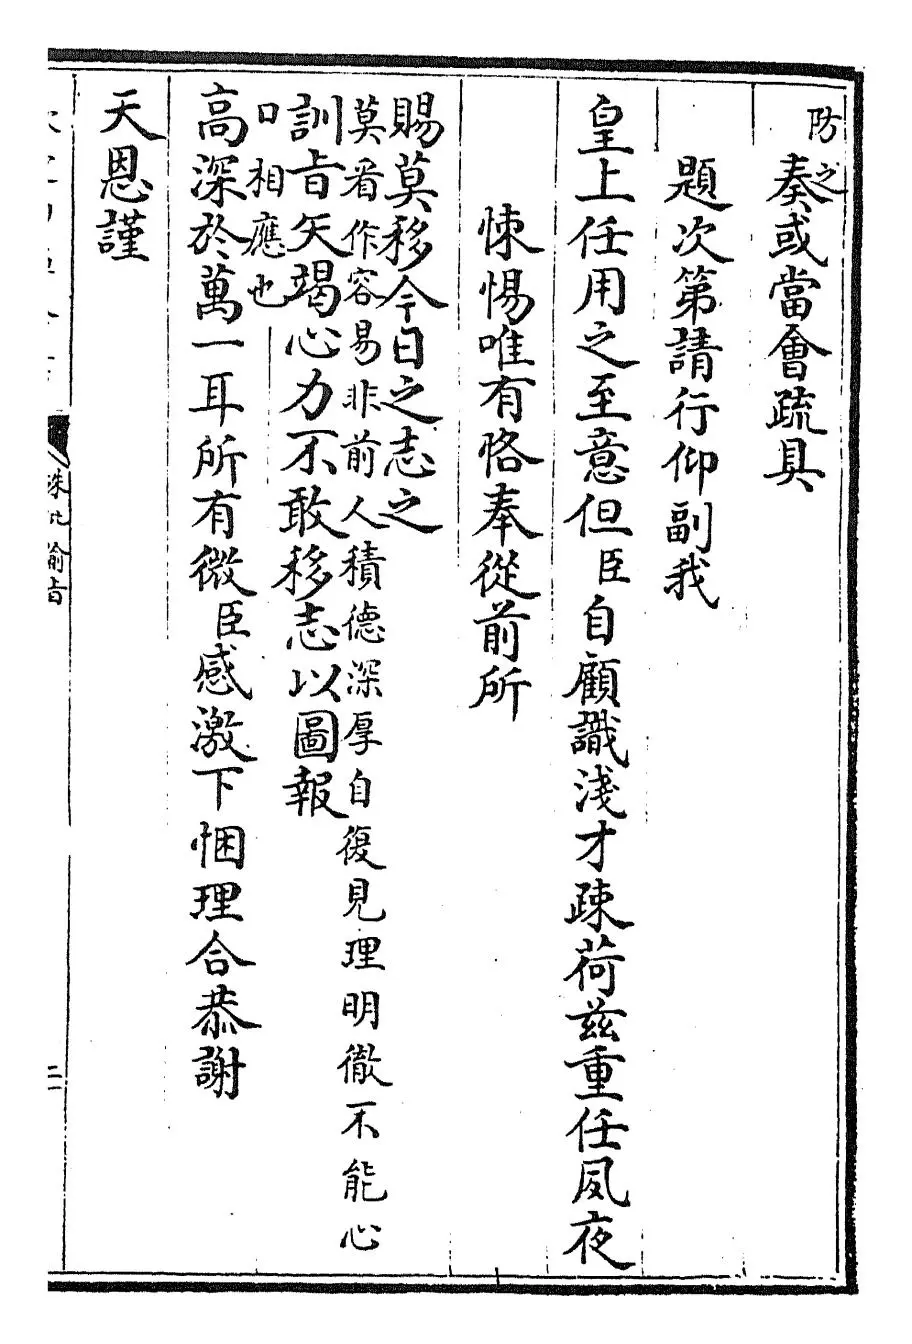 防之
奏或當會疏具
題次第請行仰副我
皇上任用之至意但臣自顧識淺才疎荷茲重任夙夜
悚惕唯有恪奉從前所
賜莫移今日之志之
莫看作容易非前人積德深厚自復見理明徹不能心
訓旨矢竭心力不敢移志以圖報
口相應也
高深於萬一耳所有微臣感激下悃理合恭謝
天恩謹
硃批諭旨
二